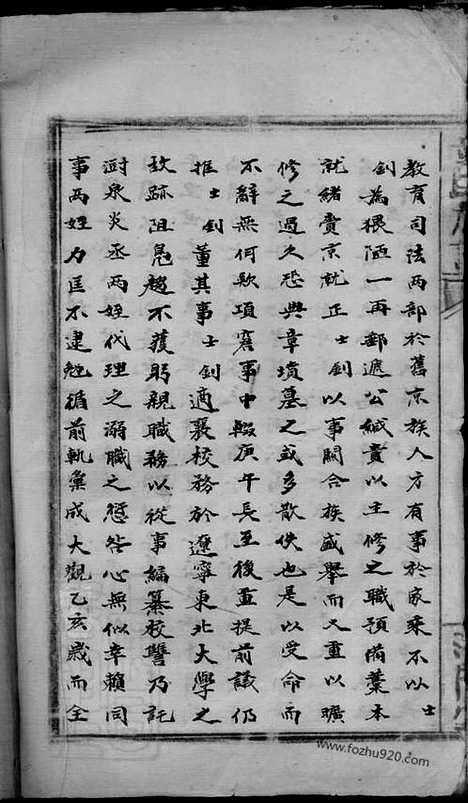 教育司法两部於舊京族人方有事於家乘不以士
釗為猥陋一再郵遞公緘責以主修之職預備藁本
就緒賫京就正士釗以事關合族盛舉而又重以曠
修之過久恐典章墳墓之或多散佚也是以受命而
不辭無何欵項窘事中輟庚午長至後重提前議仍
推士釗董其事士釗適襄校務於遼寧東北大學之
故跡阻鳧趨不獲躬親職務以從事編纂校讐乃託
澍泉炎丞兩姪代理之溺職之愆咎心無似幸賴同
事两姓力匡不逮勉循前軌彙成大觀乙亥歲而全
www.fozhu920.com